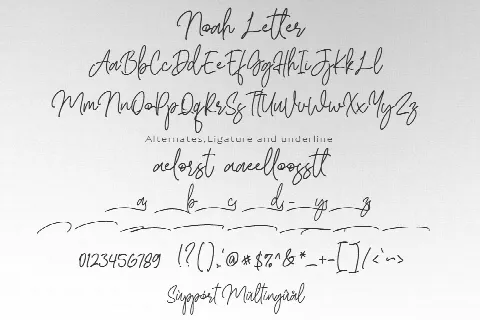 Noah Letter
AaBbCcDdEeFfGgHhIiJjKkLl
MmNnOoPpQqRrSsTtUuVvWwXxYyZz
Alternates,Ligature and underline
aelorst aaeelloosstt
a b c d y z
0123456789 !?(),;'@#$%^&*_+-[]/<`~>
Süppört Mültingüäl